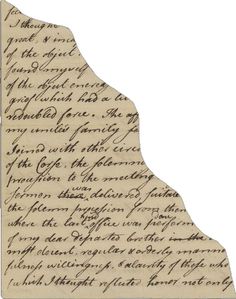 I thought
great, & inc
of the object.
found myself
of the object encrea
grief which had a
redoubled force. The aff
my uncles family fo
Joined with other circ
of the Corse, the solemn
procession to the meeting
sermon there was delivered, suitable
the solemn procession from thence
where the last office was perform
of my dear departed brother in the
most decent, regular & orderly mann
fulness willingness, & alacrity of those who
(which I thought reflected honor not only